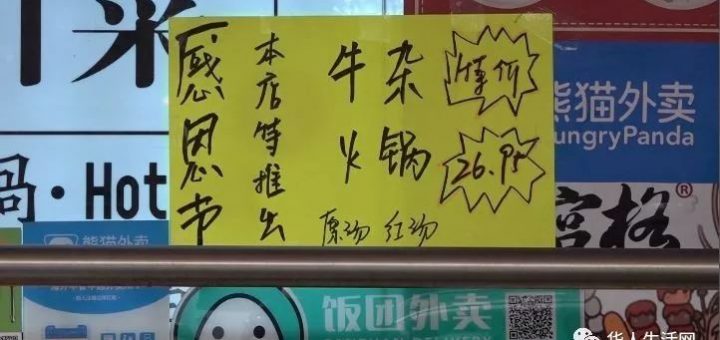 感恩节
本店特推出
牛杂
火锅
原汤 红汤
特价
26.95
熊猫外卖
HungryPanda
宫格®
锅·Hot
熊猫外卖
饭团外卖
华人生活网